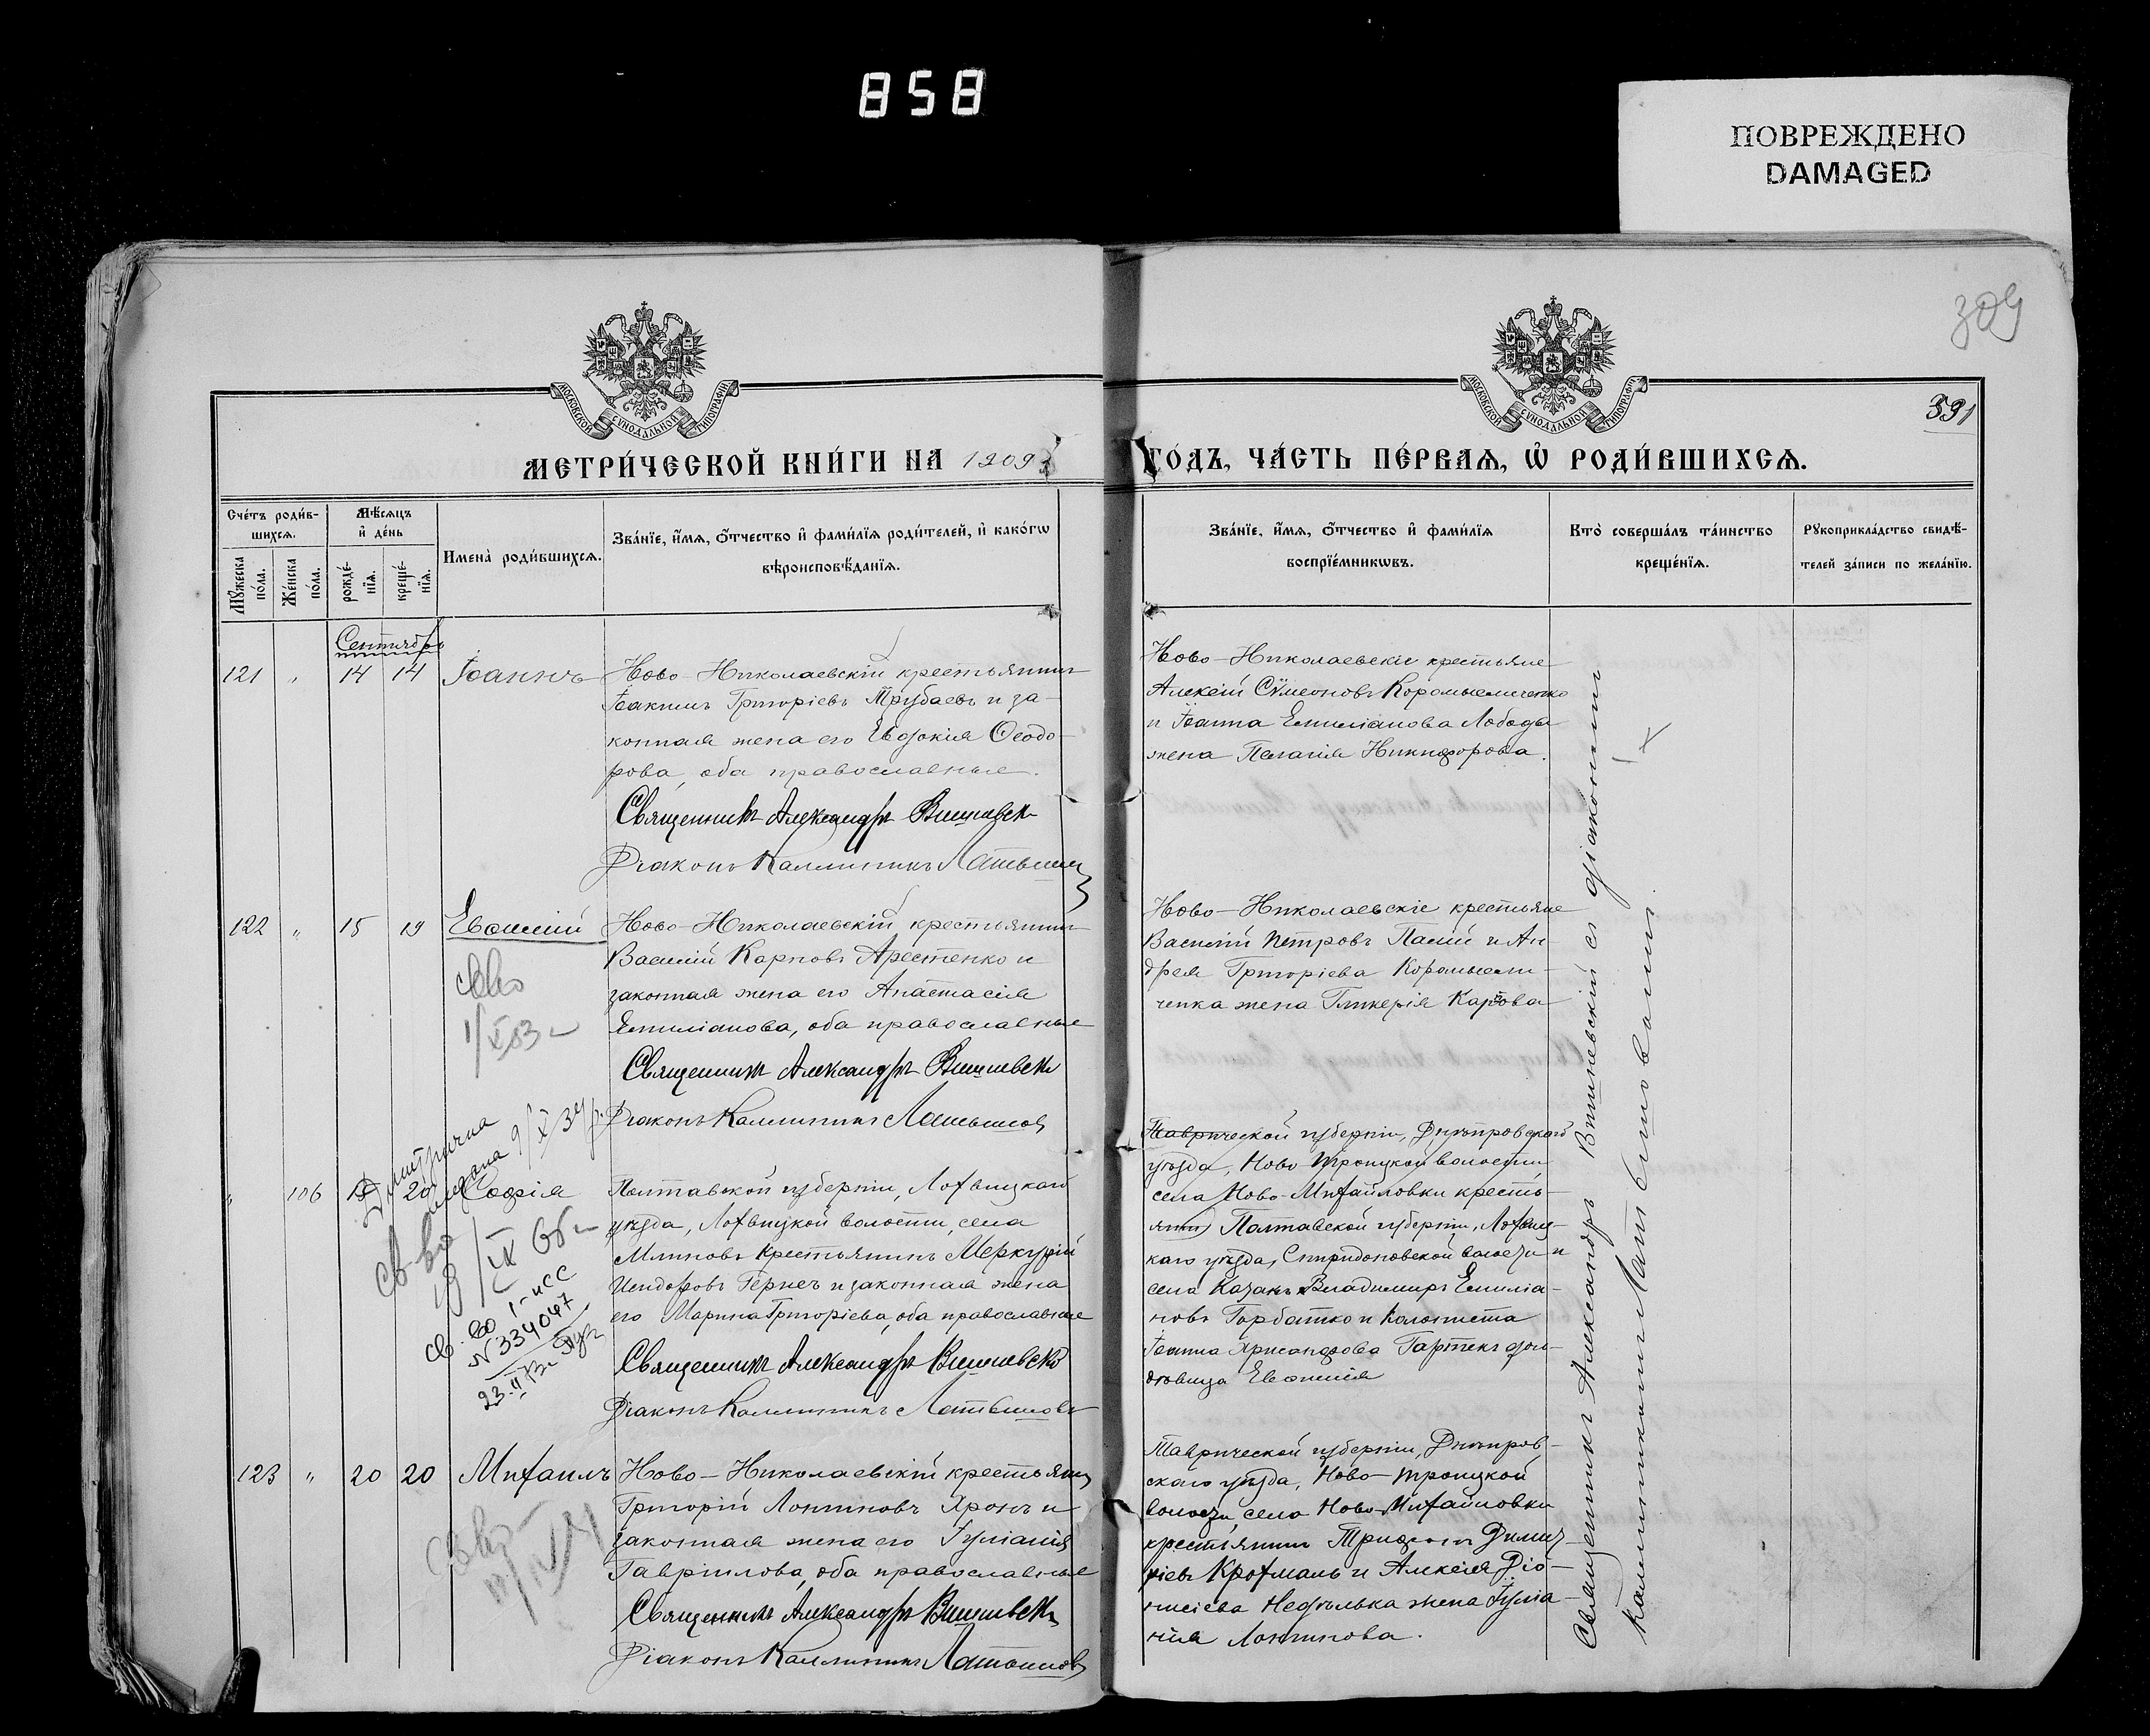 858
ПОВРЕЖДЕНО
DAMAGED
309
391
МОСКОВСКОЙ СѴНОДАЛЬНОЙ ТИПОГРАФІИ
МОСКОВСКОЙ СѴНОДАЛЬНОЙ ТИПОГРАФІИ
МЕТРИ́ЧЕСКОЙ КНИ́ГИ НА 1909
ГО́ДЪ, ЧА́СТЬ ПЕ́РВАѦ, Ѡ҆ РОДИ́ВШИХСѦ.
Сче́тъ роди́в-
шихсѧ.
Мꙋ́жеска по́ла.
Же́нска по́ла.
Мѣ́сѧцъ
и҆ де́нь
рожде́-нїѧ.
креще́-нїѧ.
Имена̀ роди́вшихсѧ.
Зва́нїе, и҆́мѧ, ѻ҆́тчество и҆ фами́лїѧ роди́телей, и҆ како́гѡ
вѣроисповѣ́данїѧ.
Зва́нїе, и҆́мѧ, ѻ҆́тчество и҆ фами́лїѧ
воспрїе́мникѡвъ.
Кто̀ соверша́лъ та́инство
креще́нїѧ.
Рꙋкоприкла́дство свидѣ́-
телей за́писи по жела́нїю.
Сентябрь
121 " 14 14 Іоаннъ
Ново-Николаевскій крестьянинъ
Іоакимъ Григоріевъ Трубаевъ и за-
конная жена его Евдокія Ѳеодо-
рова, оба православные.
Священникъ Александръ Вишневск
Діаконъ Каллиникъ Латышев
Ново-Николаевскіе крестьяне
Алексій Сѵмеоновъ Коромысличенко
и Іоанна Емиліанова Лободы
жена Пелагія Никифорова.
122 " 15 19 Евѳимій
св-во
Ново-Николаевскій крестьянинъ
Василій Карповъ Арестенко и
законная жена его Анастасія
Емиліанова, оба православные
Священникъ Александръ Вишневск
Діаконъ Каллиникъ Латышов
Ново-Николаевскіе крестьяне
Василій Петровъ Палій и Ан-
дрея Григоріева Коромысли-
ченка жена Гликерія Карпова
" 106 20 Софія
Дмитрична
св-во
19/IX 65 г
св.-во I-ИСС
N 334047
Полтавской губерніи, Лохвицкаго
уѣзда, Лохвицкой волости, села
Млиновъ крестьянинъ Меркурій
Исидоровъ Гернец и законная жена
его Марина Григоріева, оба православные
Священникъ Александръ Вишневск
Діаконъ Каллиникъ Латышовъ
Таврической губерніи, Днѣпровскаго
уѣзда, Ново-Троицкой волости
села Ново-Михайловки кресть-
янин Полтавской губерніи, Лохвиц-
каго уѣзда, Спиридоновской волости
села Казакъ Владимиръ Емиліа-
новъ Горбатко и колониста
Іоанна Гартенъ доч-
Евѳимія
123 " 20 20 Михаилъ
св-во
Ново-Николаевскій крестьянин
Григорій Логиновъ Яронъ и
законная жена его Іуліанія
Гавріилова, оба православные
Священникъ Александръ Вишневск
Діаконъ Каллиникъ Латышов
Таврической губерніи, Днѣпров-
скаго уѣзда, Ново-Троицкой
волости, села Ново-Михайловки
крестьянинъ Трифонъ Димит-
ріевъ Крохмаль и Алексія Діо-
нисіева Недѣлька жена Іуліа-
нія Логинова.
Священникъ Александръ Вишневскій съ діакономъ
Каллиникомъ Латышовымъ.